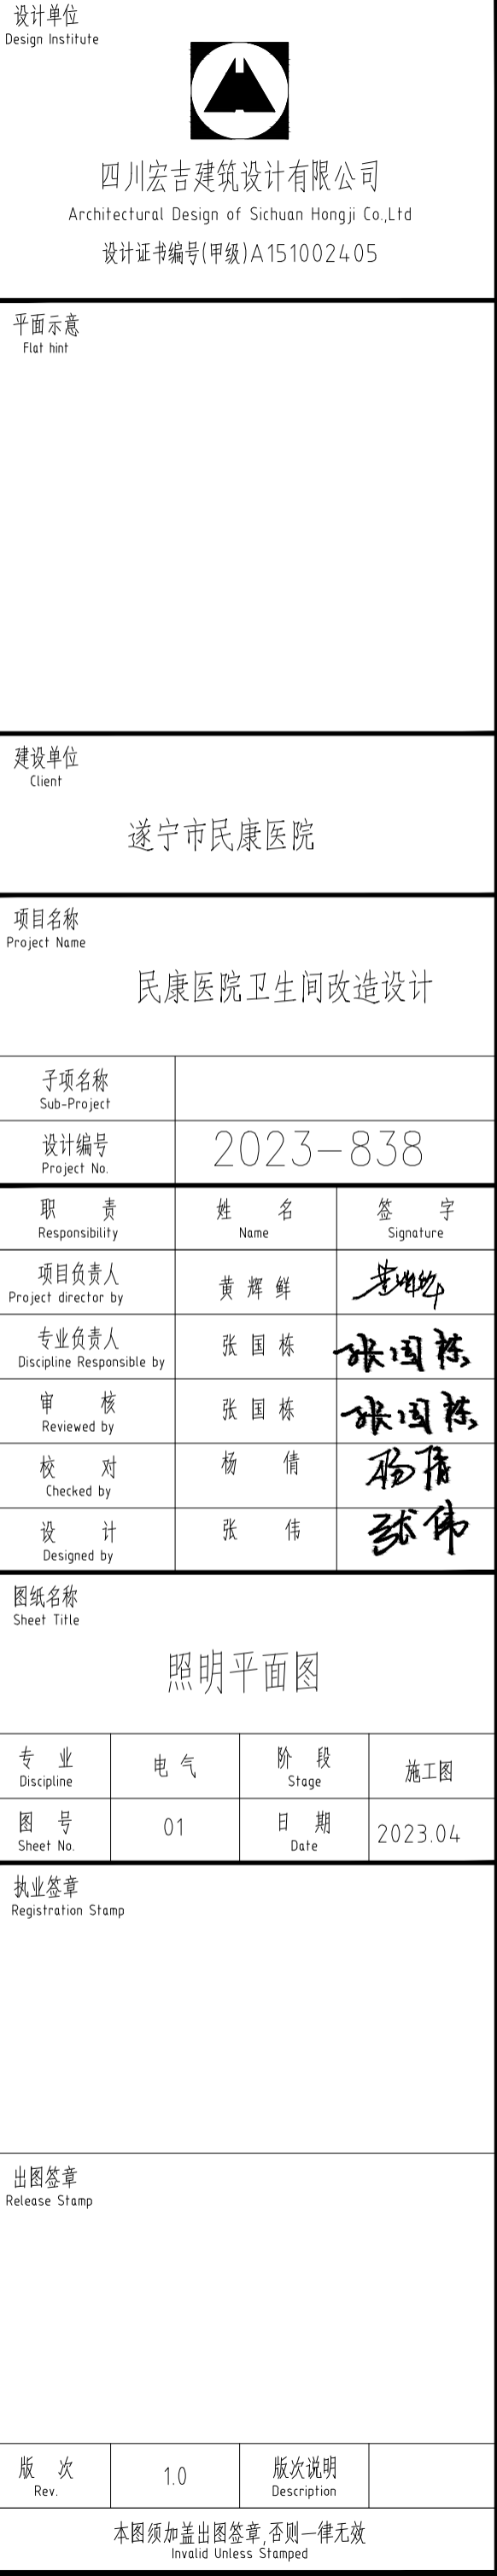 设计单位
Design Institute
四川宏吉建筑设计有限公司
Architectural Design of Sichuan Hongji Co.,Ltd
设计证书编号(甲级)A151002405
平面示意
Flat hint
建设单位
Client
遂宁市民康医院
项目名称
Project Name
民康医院卫生间改造设计
子项名称
Sub-Project
设计编号
Project No.
2023-838
职 责 姓 名 签 字
Responsibility Name Signature
项目负责人 黄 辉 鲜 黄辉鲜
Project director by
专业负责人 张 国 栋 张国栋
Discipline Responsible by
审 核 张 国 栋 张国栋
Reviewed by
校 对 杨 倩 杨倩
Checked by
设 计 张 伟 张伟
Designed by
图纸名称
Sheet Title
照明平面图
专 业 电 气 阶 段 施工图
Discipline Stage
图 号 01 日 期 2023.04
Sheet No. Date
执业签章
Registration Stamp
出图签章
Release Stamp
版 次 1.0 版次说明
Rev. Description
本图须加盖出图签章,否则一律无效
Invalid Unless Stamped